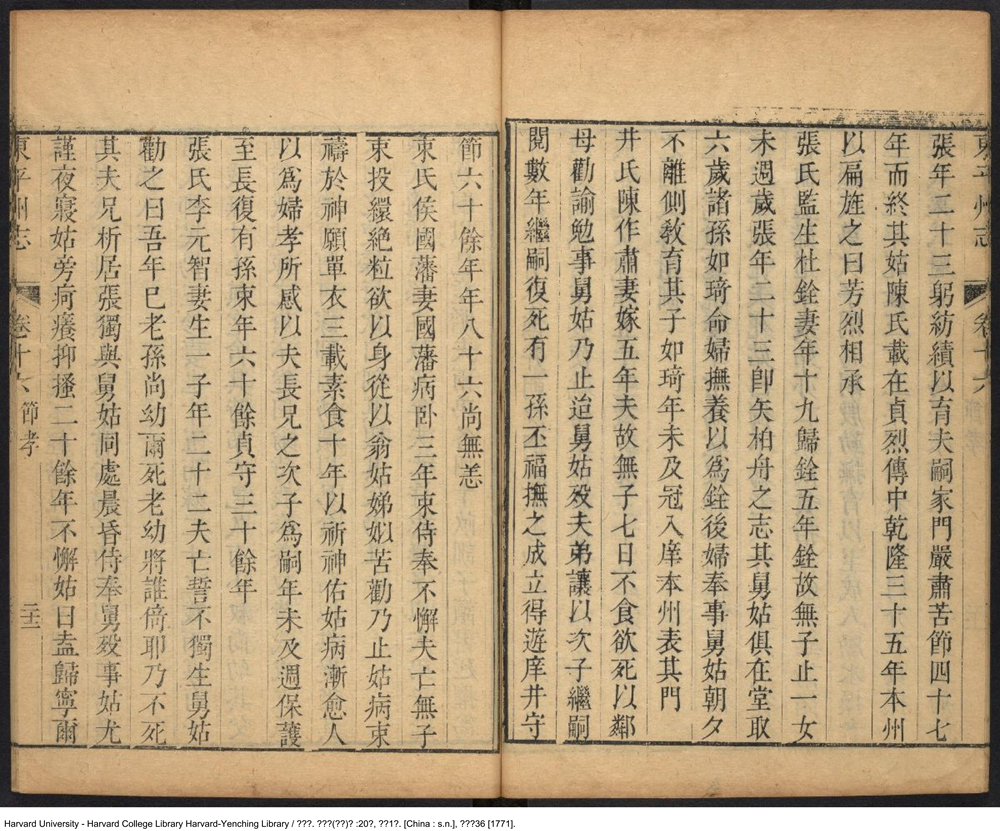 東平州志 卷十六
張年二十三躬紡績以育夫嗣家門嚴肅苦節四十七
年而終其姑陳氏載在貞烈傳中乾隆三十五年本州
以扁旌之曰芳烈相承
張氏監生杜銓妻年十九歸銓五年銓故無子止一女
未週歲張年二十三卽矢柏舟之志其舅姑俱在堂取
六歲諸孫如琦命婦撫養以爲銓後婦奉事舅姑朝夕
不離側敎育其子如琦年未及冠入庠本州表其門
井氏陳作肅妻嫁五年夫故無子七日不食欲死以鄰
母勸諭勉事舅姑乃止迨舅姑歿夫弟讓以次子繼嗣
閱數年繼嗣復死有一孫丕福撫之成立得遊庠井守
節六十餘年年八十六尚無恙
束氏侯國藩妻國藩病卧三年束侍奉不懈夫亡無子
束投繯絶粒欲以身從以翁姑娣姒苦勸乃止姑病束
禱於神願單衣三載素食十年以祈神佑姑病漸愈人
以爲婦孝所感以夫長兄之次子爲嗣年未及週保護
至長復有孫束年六十餘貞守三十餘年
張氏李元智妻生一子年二十二夫亡誓不獨生舅姑
勸之曰吾年已老孫尚幼爾死老幼將誰倚耶乃不死
其夫兄析居張獨與舅姑同處晨昏侍奉舅歿事姑尤
謹夜寢姑旁疴癢抑搔二十餘年不懈姑曰盍歸寧爾
東平州志 卷十六 節孝 二十三
Harvard University - Harvard College Library Harvard-Yenching Library / ???. ???(??)? :20?, ??1?. [China : s.n.], ???36 [1771].